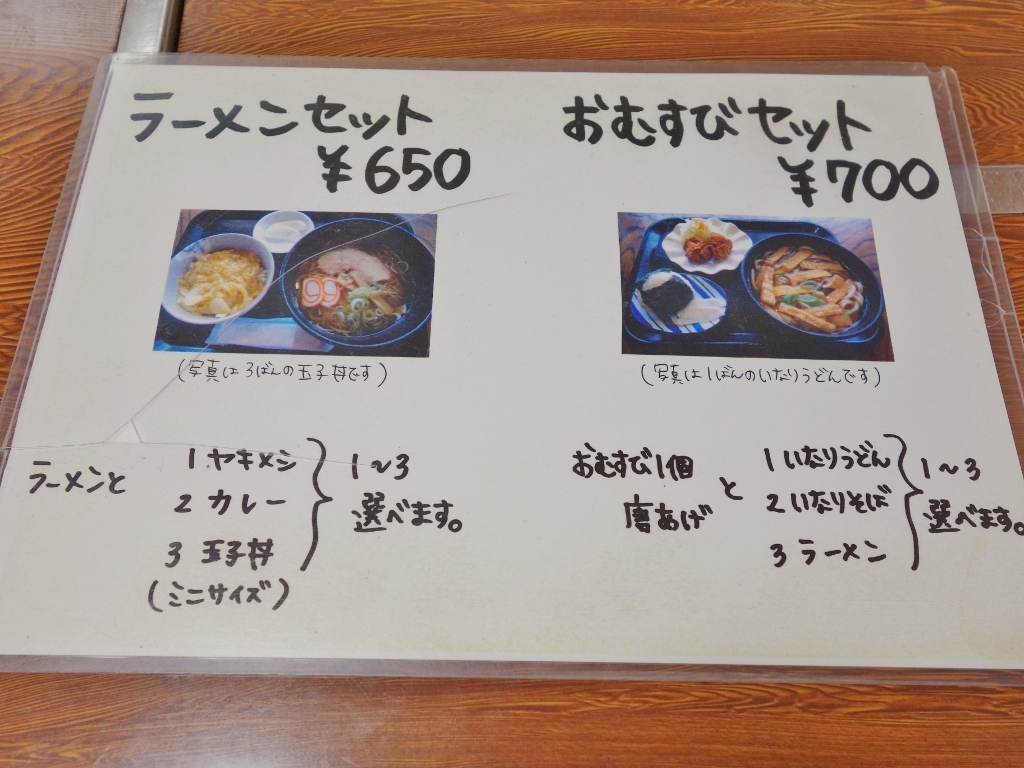 ラーメンセット
¥650
(写真は3ばんの玉子丼です)
ラーメンと
1 ヤキメシ
2 カレー
3 玉子丼
(ミニサイズ)
1~3
選べます。
おむすびセット
¥700
(写真は1ばんのいなりうどんです)
おむすび1個
唐あげ
と
1 いなりうどん
2 いなりそば
3 ラーメン
1~3
選べます。